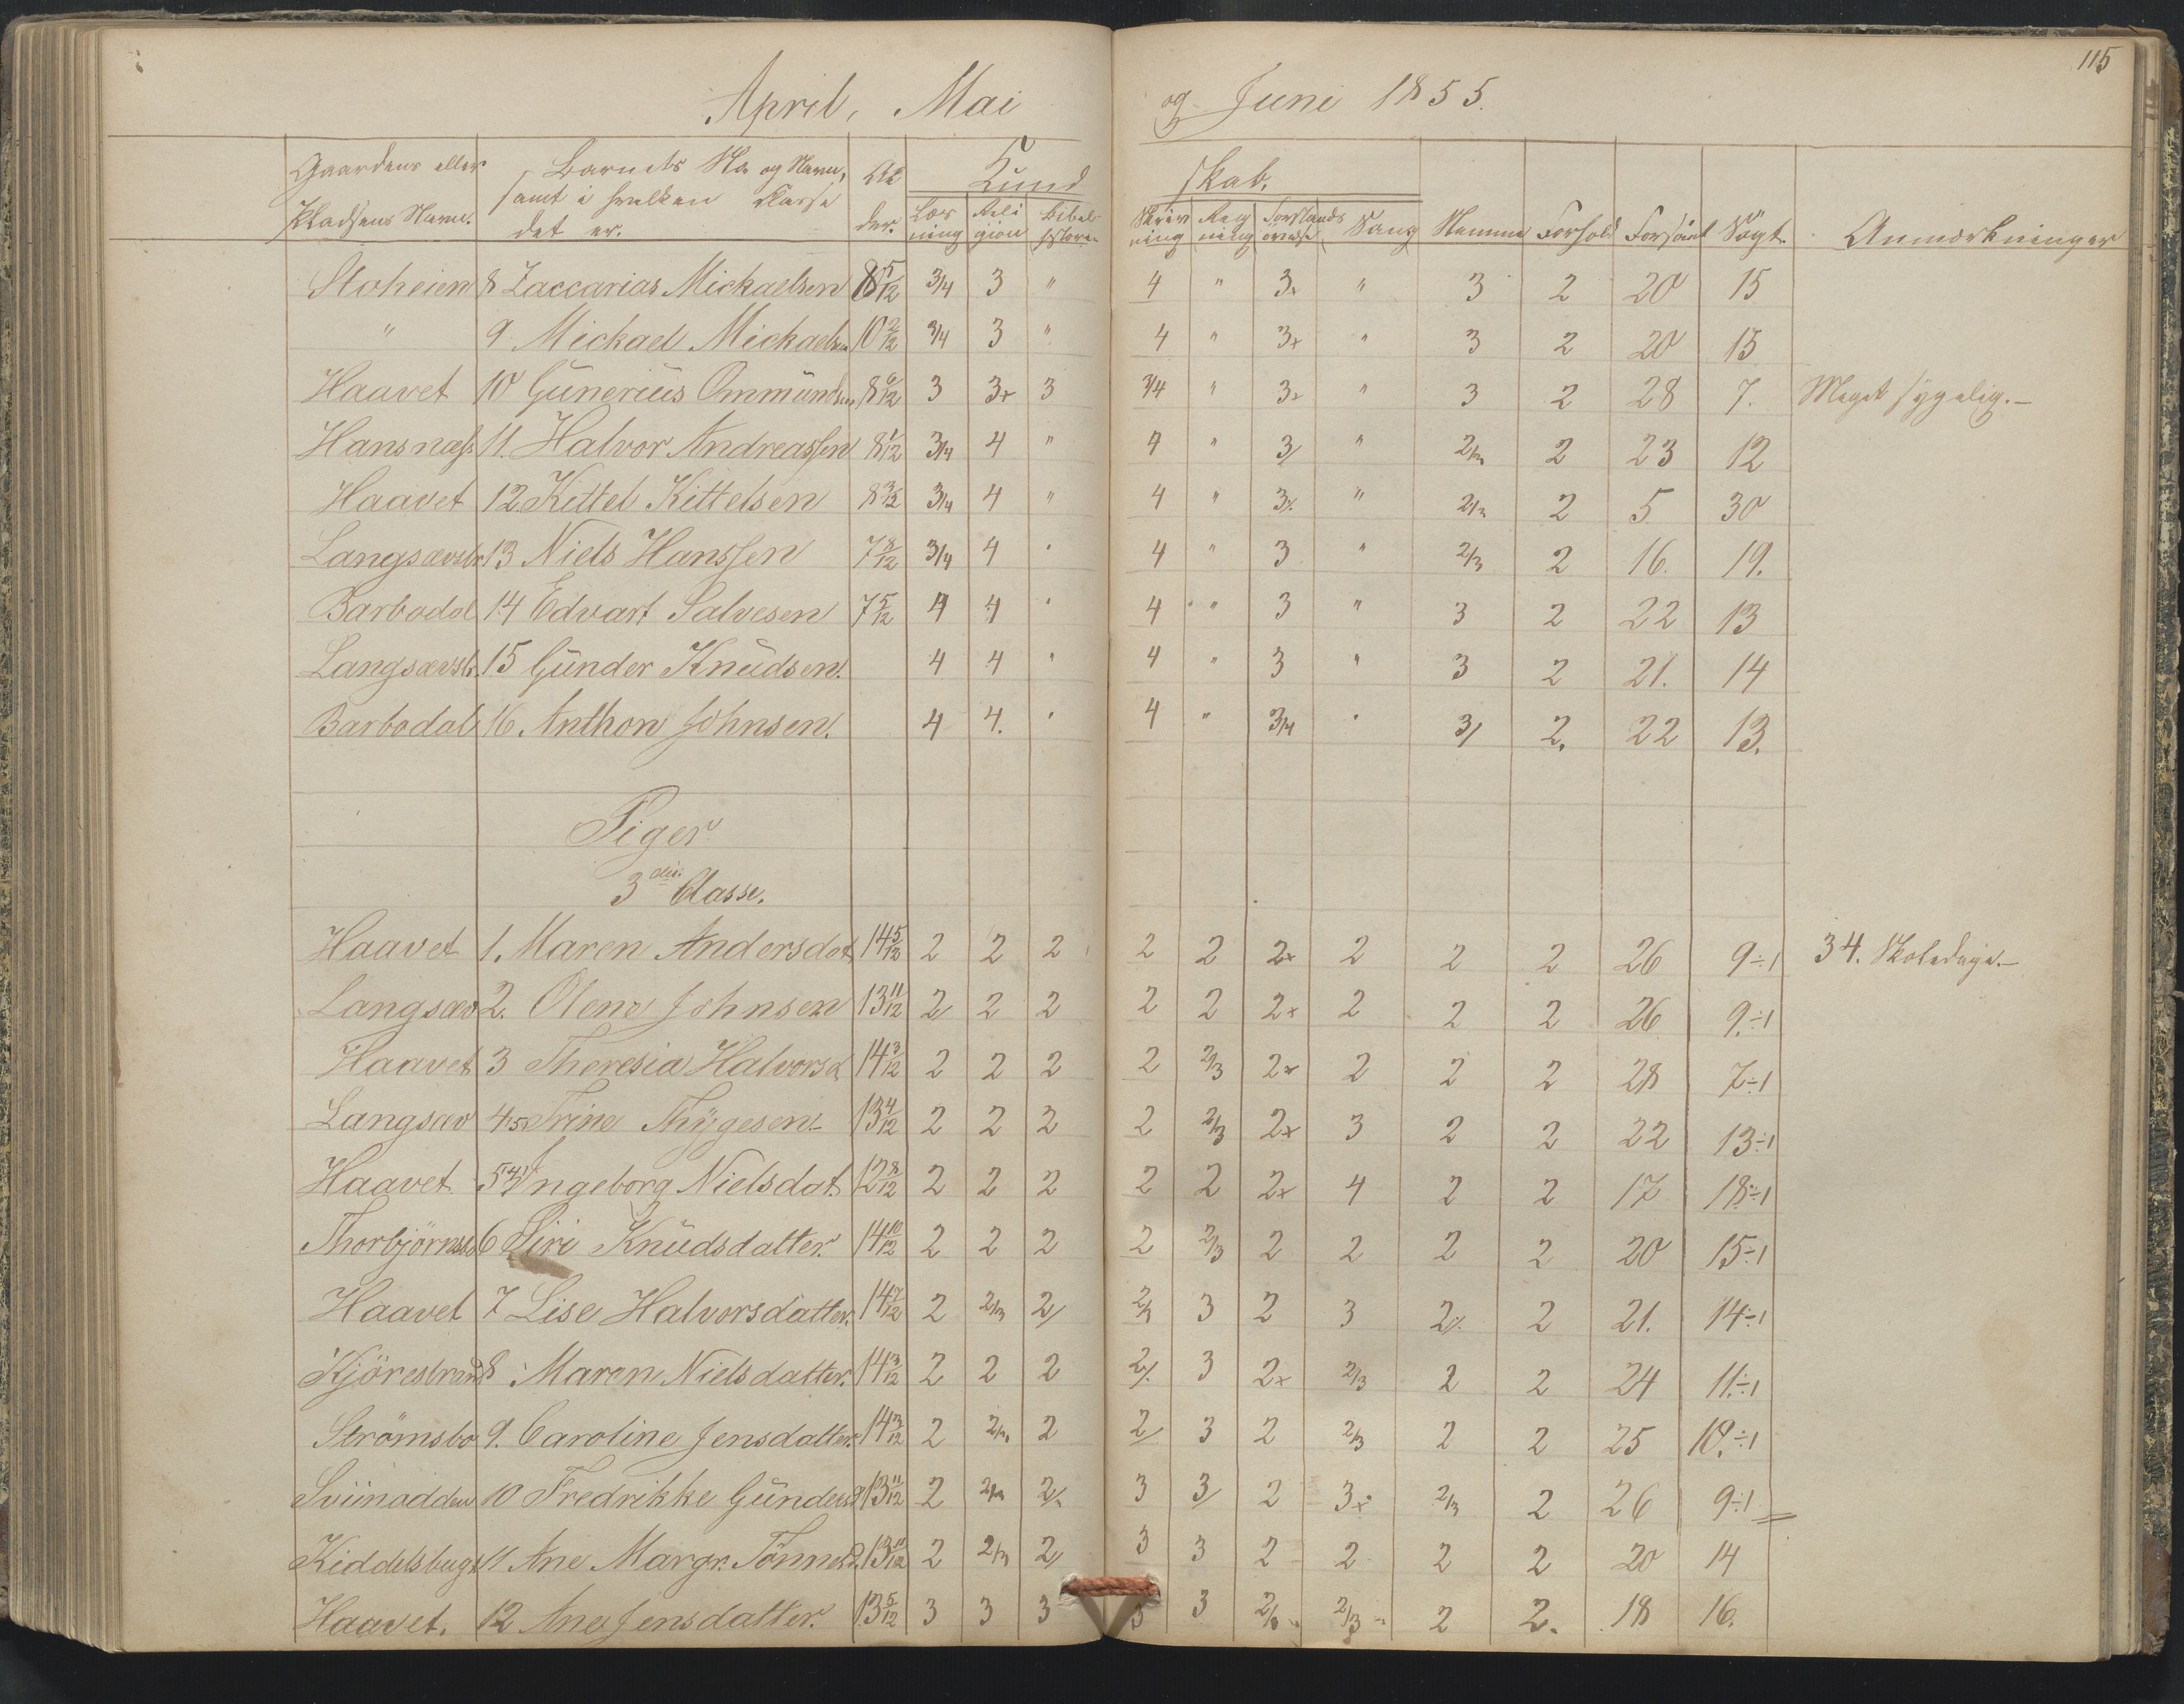 115
April, Mai og Juni 1855.
Gaardens eller Pladsens Navn. Barnets No og Navn, samt i hvilken Classe det er. Alder. Kundskab. Læsning Religion Bibelhistorie Skrivning Regning Forstandsövelse Sang Nemme Forhold Forsömt Sögt. Anmærkninger
Stoheien 8 Zaccarias Mickaelsen 8 5/12 3/4 3 " 4 " 3x " 3 2 20 15
" 9 Mickael Mickaelsen 10 2/12 3/4 3 " 4 " 3x " 3 2 20 15
Haavet 10 Günerius Ommündsen 8 6/12 3 3x 3 3/4 " 3x " 3 2 28 7. Meget sygelig.
Hansnæss 11. Halvor Andreassen 8 1/12 3/4 4 " 4 " 3/ " 2/3 2 23 12
Haavet 12 Kittel Kittelsen 8 3/12 3/4 4 " 4 " 3/. " 2/3 2 5 30
Langsævstr 13 Niels Hanssen 7 8/12 3/4 4 " 4 " 3 " 2/3 2 16. 19.
Barbodal 14 Edvart Salvesen 7 5/12 4 4 " 4 " 3 " 3 2 22 13
Langsævstr. 15 Günder Knüdsen. 4 4 " 4 " 3 " 3 2 21. 14
Barbodal 16. Anthon Johnsen. 4 4. " 4 " 3/4 " 3/ 2. 22 13.
Piger
3die Classe.
Haavet 1. Maren Andersdat. 14 5/12 2 2 2 2 2 2x 2 2 2 26 9÷1 34. Skoledage.
Langsæv 2. Olene Johnsen 13 11/12 2 2 2 2 2 2x 2 2 2 26 9.÷1
Haavet 3 Theresia Halvorsd. 14 3/12 2 2 2 2 2/3 2x 2 2 2 28 7÷1
Langsæv 4 5 Trine Thÿgesen 13 4/12 2 2 2 2 2/3 2x 3 2 2 22 13÷1
Haavet 5 "4" Ingeborg Nielsdat. 12 8/12 2 2 2 2 2 2x 4 2 2 17 18÷1
Thorbjörnsb 6 Siri Knüdsdatter. 14 10/12 2 2 2 2 2/3 2 2 2 2 20 15÷1
Haavet 7 Lise Halvorsdatter. 14 7/12 2 2/3 2/ 2/3 3 2 3 2/. 2 21. 14÷1
Kjörestrand 8 Maren Nielsdatter. 14 3/12 2 2 2 2/. 3 2x 2/3 2 2 24 11.÷1
Strömsbo 9. Caroline Jensdatter. 14 3/12 2 2/3 2 2/ 3 2 2/3 2 2 25 10.÷1
Sviinodden 10 Fredrikke Günders 13 11/12 2 2/3 2/3 3 3/ 2 3x 2/3 2 26 9÷1
Kiddelsbugt 11 Ane Margr. Tönnesd. 13 11/12 2 2/3 2/ 3 3 2 2 2 2 20 14
Haavet. 12 Ane Jensdatter. 13 5/12 3 3 3 3 3 2/3 2/3 2 2. 18 16.